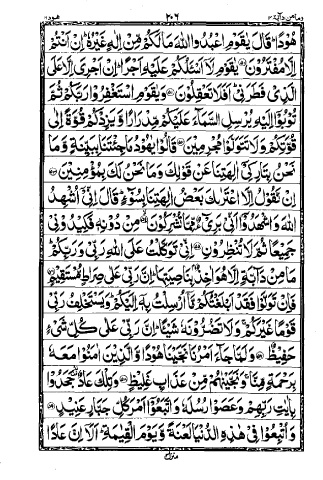 وما من دآبة ١٢ ٢٠٦ هود ١١
هُوْدًا ؕ قَالَ یٰقَوْمِ اعْبُدُوا اللّٰهَ مَا لَكُمْ مِّنْ اِلٰهٍ غَیْرُهٗ ؕ اِنْ اَنْتُمْ
اِلَّا مُفْتَرُوْنَ ۝ یٰقَوْمِ لَاۤ اَسْـَٔلُكُمْ عَلَیْهِ اَجْرًا ؕ اِنْ اَجْرِیَ اِلَّا عَلَی
الَّذِیْ فَطَرَنِیْ ؕ اَفَلَا تَعْقِلُوْنَ ۝ وَیٰقَوْمِ اسْتَغْفِرُوْا رَبَّكُمْ ثُمَّ
تُوْبُوْۤا اِلَیْهِ یُرْسِلِ السَّمَآءَ عَلَیْكُمْ مِّدْرَارًا وَّیَزِدْكُمْ قُوَّةً اِلٰی
قُوَّتِكُمْ وَلَا تَتَوَلَّوْا مُجْرِمِیْنَ ۝ قَالُوْا یٰهُوْدُ مَا جِئْتَنَا بِبَیِّنَةٍ وَّمَا
نَحْنُ بِتَارِكِیْۤ اٰلِهَتِنَا عَنْ قَوْلِكَ وَمَا نَحْنُ لَكَ بِمُؤْمِنِیْنَ ۝
اِنْ نَّقُوْلُ اِلَّا اعْتَرٰىكَ بَعْضُ اٰلِهَتِنَا بِسُوْٓءٍ ؕ قَالَ اِنِّیْۤ اُشْهِدُ
اللّٰهَ وَاشْهَدُوْۤا اَنِّیْ بَرِیْٓءٌ مِّمَّا تُشْرِكُوْنَ ۝ مِنْ دُوْنِهٖ فَكِیْدُوْنِیْ
جَمِیْعًا ثُمَّ لَا تُنْظِرُوْنِ ۝ اِنِّیْ تَوَكَّلْتُ عَلَی اللّٰهِ رَبِّیْ وَرَبِّكُمْ ؕ
مَا مِنْ دَآبَّةٍ اِلَّا هُوَ اٰخِذٌۢ بِنَاصِیَتِهَا ؕ اِنَّ رَبِّیْ عَلٰی صِرَاطٍ مُّسْتَقِیْمٍ ۝
فَاِنْ تَوَلَّوْا فَقَدْ اَبْلَغْتُكُمْ مَّاۤ اُرْسِلْتُ بِهٖۤ اِلَیْكُمْ ؕ وَیَسْتَخْلِفُ رَبِّیْ
قَوْمًا غَیْرَكُمْ ۚ وَلَا تَضُرُّوْنَهٗ شَیْـًٔا ؕ اِنَّ رَبِّیْ عَلٰی كُلِّ شَیْءٍ
حَفِیْظٌ ۝ وَلَمَّا جَآءَ اَمْرُنَا نَجَّیْنَا هُوْدًا وَّالَّذِیْنَ اٰمَنُوْا مَعَهٗ
بِرَحْمَةٍ مِّنَّا ۚ وَنَجَّیْنٰهُمْ مِّنْ عَذَابٍ غَلِیْظٍ ۝ وَتِلْكَ عَادٌ ۟ۙ جَحَدُوْا
بِاٰیٰتِ رَبِّهِمْ وَعَصَوْا رُسُلَهٗ وَاتَّبَعُوْۤا اَمْرَ كُلِّ جَبَّارٍ عَنِیْدٍ ۝
وَاُتْبِعُوْا فِیْ هٰذِهِ الدُّنْیَا لَعْنَةً وَّیَوْمَ الْقِیٰمَةِ ؕ اَلَاۤ اِنَّ عَادًا